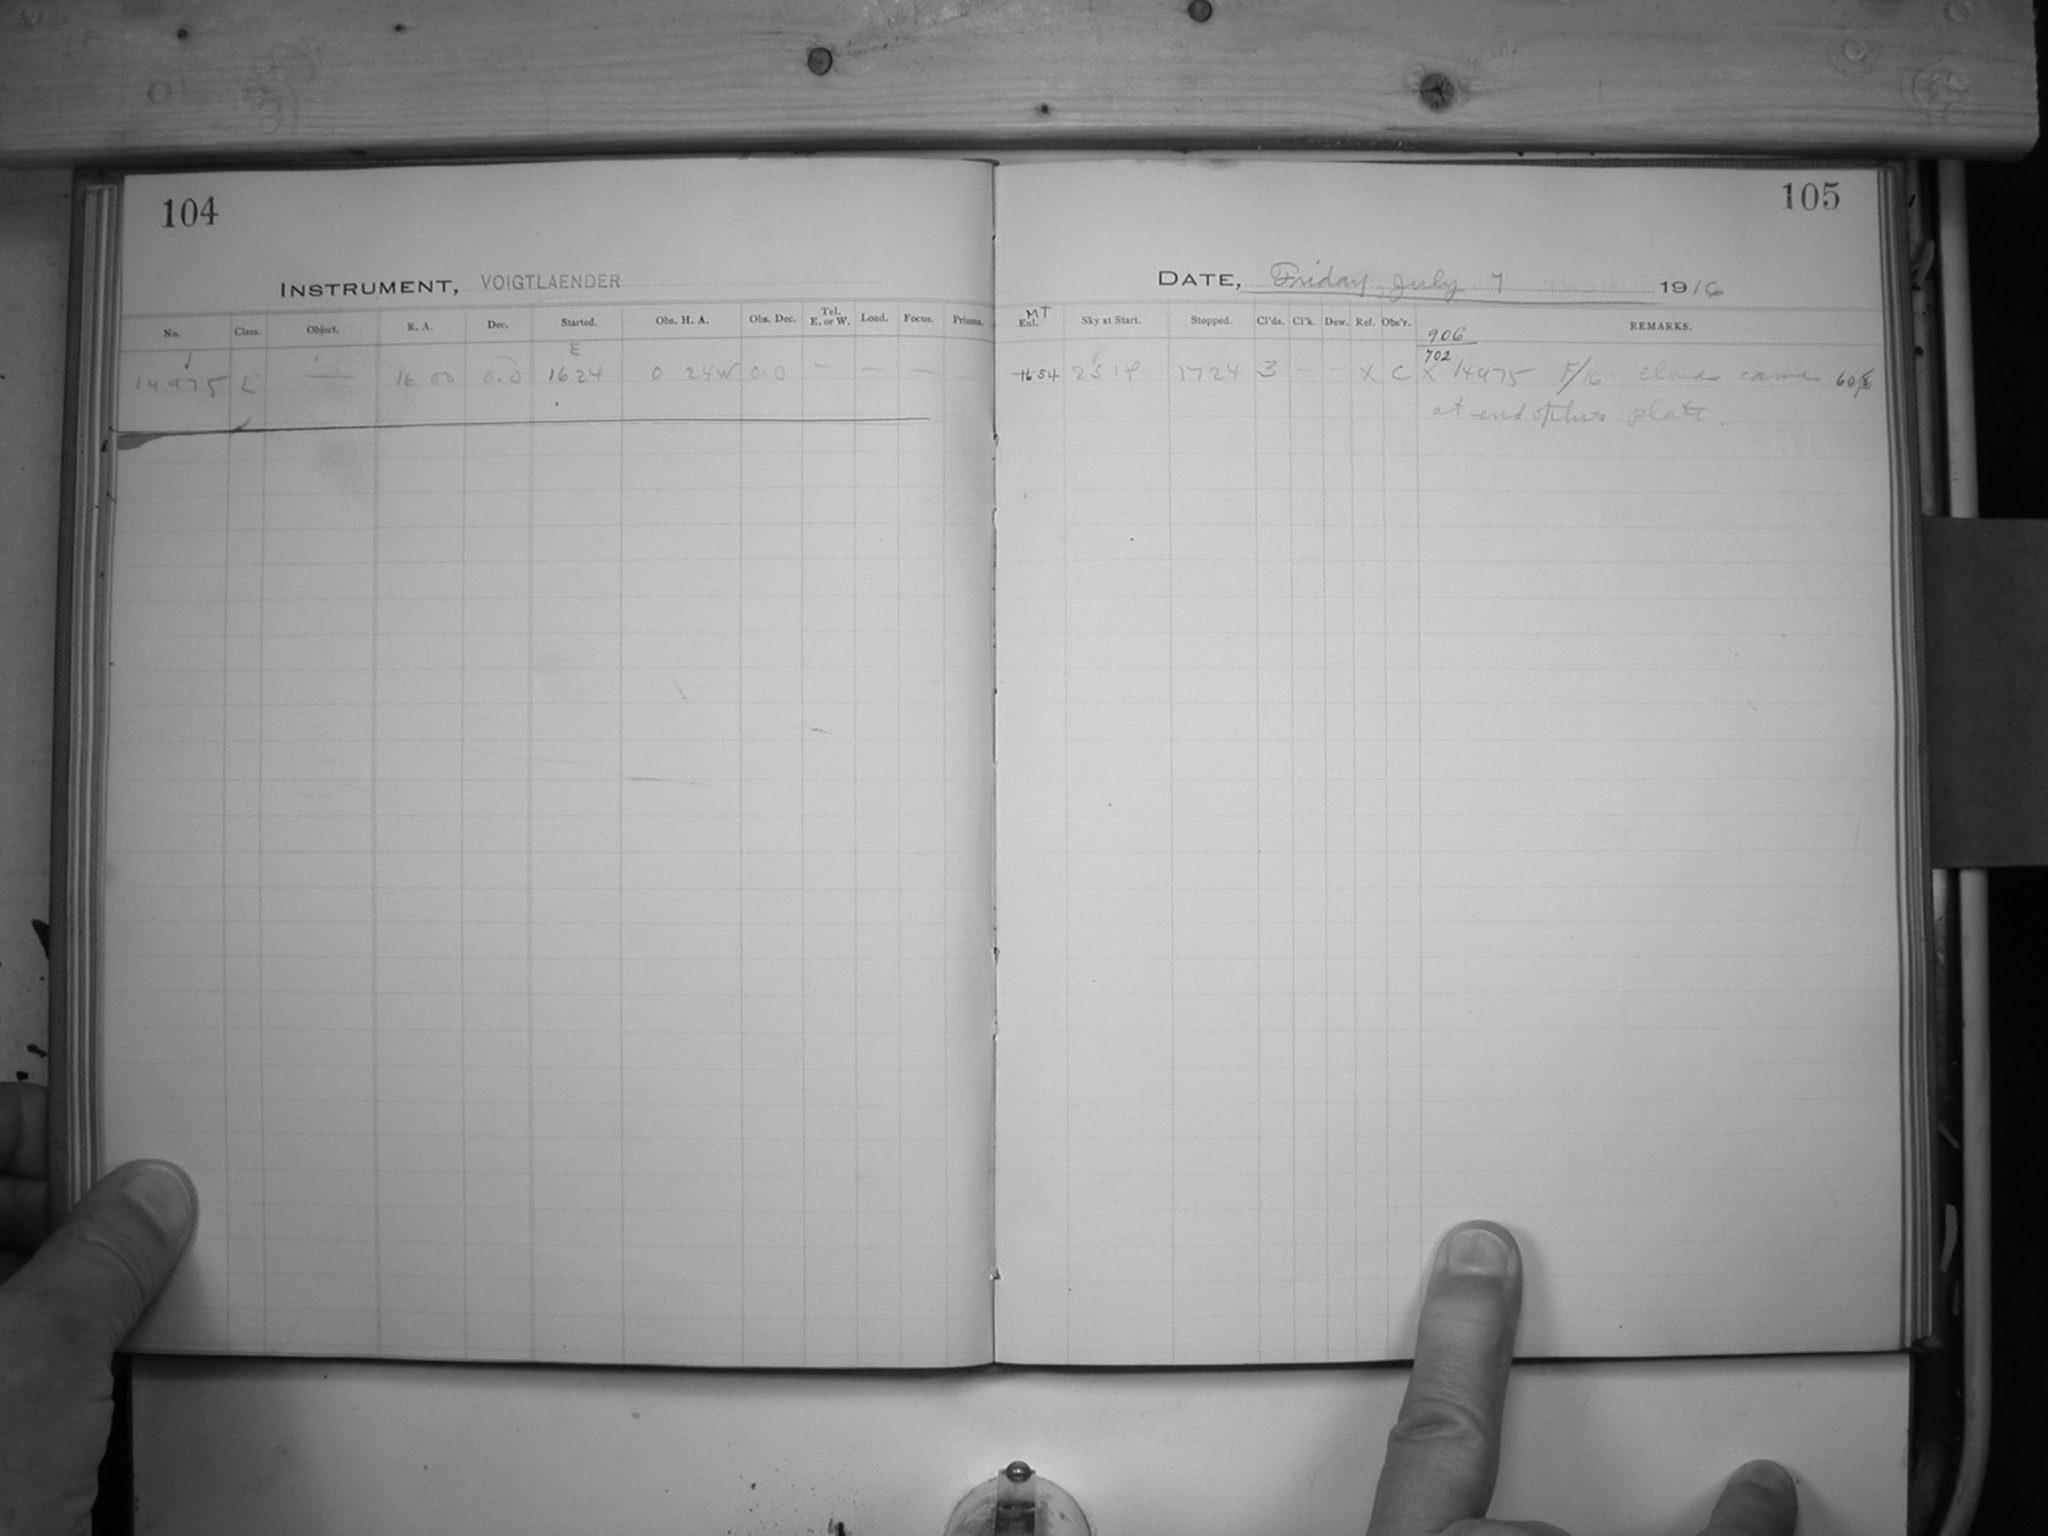 104
105
INSTRUMENT, VOIGTLAENDER
DATE, Friday July 7 1916
No. Class. Object. R. A. Dec. Started. Obs. H. A. Obs. Dec. Tel. E. or W. Load. Focus. Prisms.
MT
Enl. Sky at Start. Stopped. Cl'ds. Cl'k. Dew. Ref. Obs'r. REMARKS.
906
E
702
14975 L — 16 00 0.0 1624 0 24W 0.0 — — — —
1654 1724 3 — — X C X 14975 F/16 clouds came 60
at end of this plate.